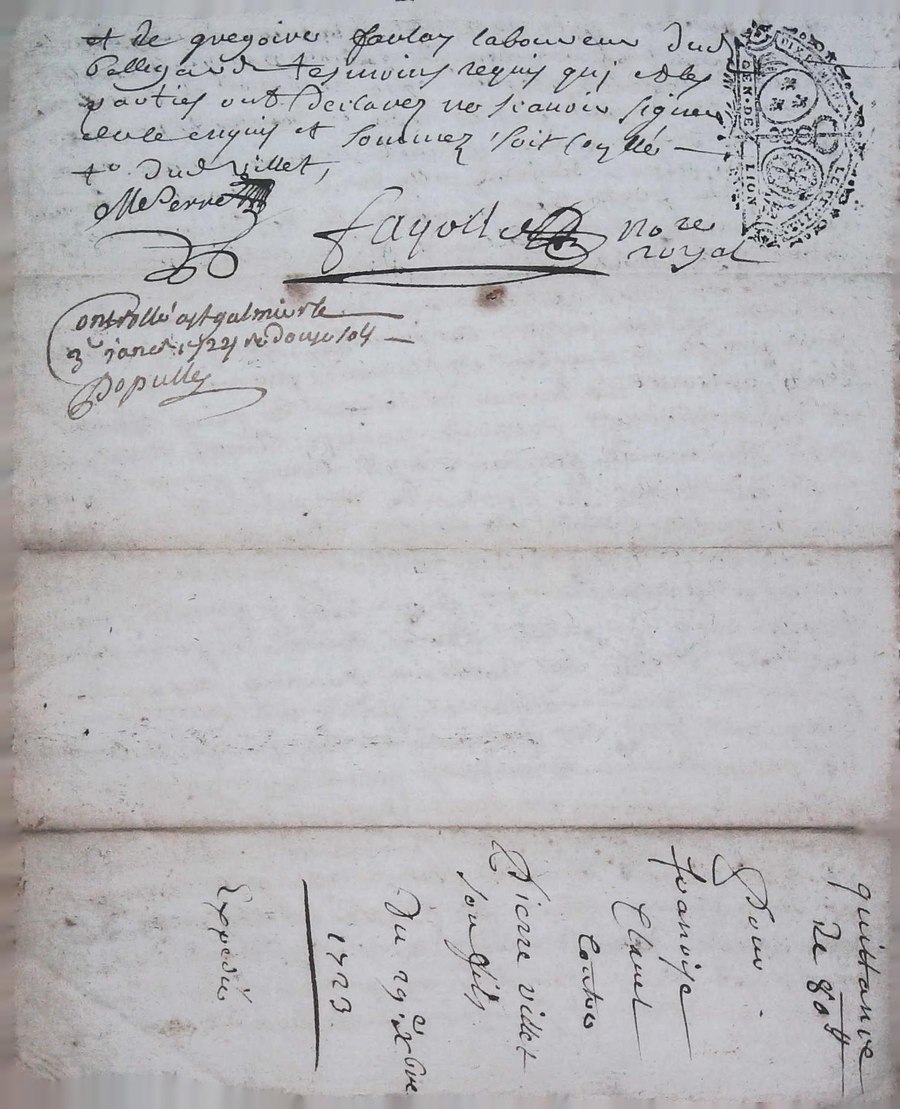 et de gregoire faulay laboureur dud
Bellegarde tesmoins requis qui et les
parties ont declarez ne scauoir signer
de ce enquis et sommez soit conllé
dud Villet,
MePerret
fayolle nore
royal
Controllé a St galmier le
3e janer 172 re Douze sols
Dopully
GEN. DE
LION
quittance
de 80ll
Pour
franoise
Clauel
Contre
Pierre villet
son fils
Du 29e xbre
1723
Expediée